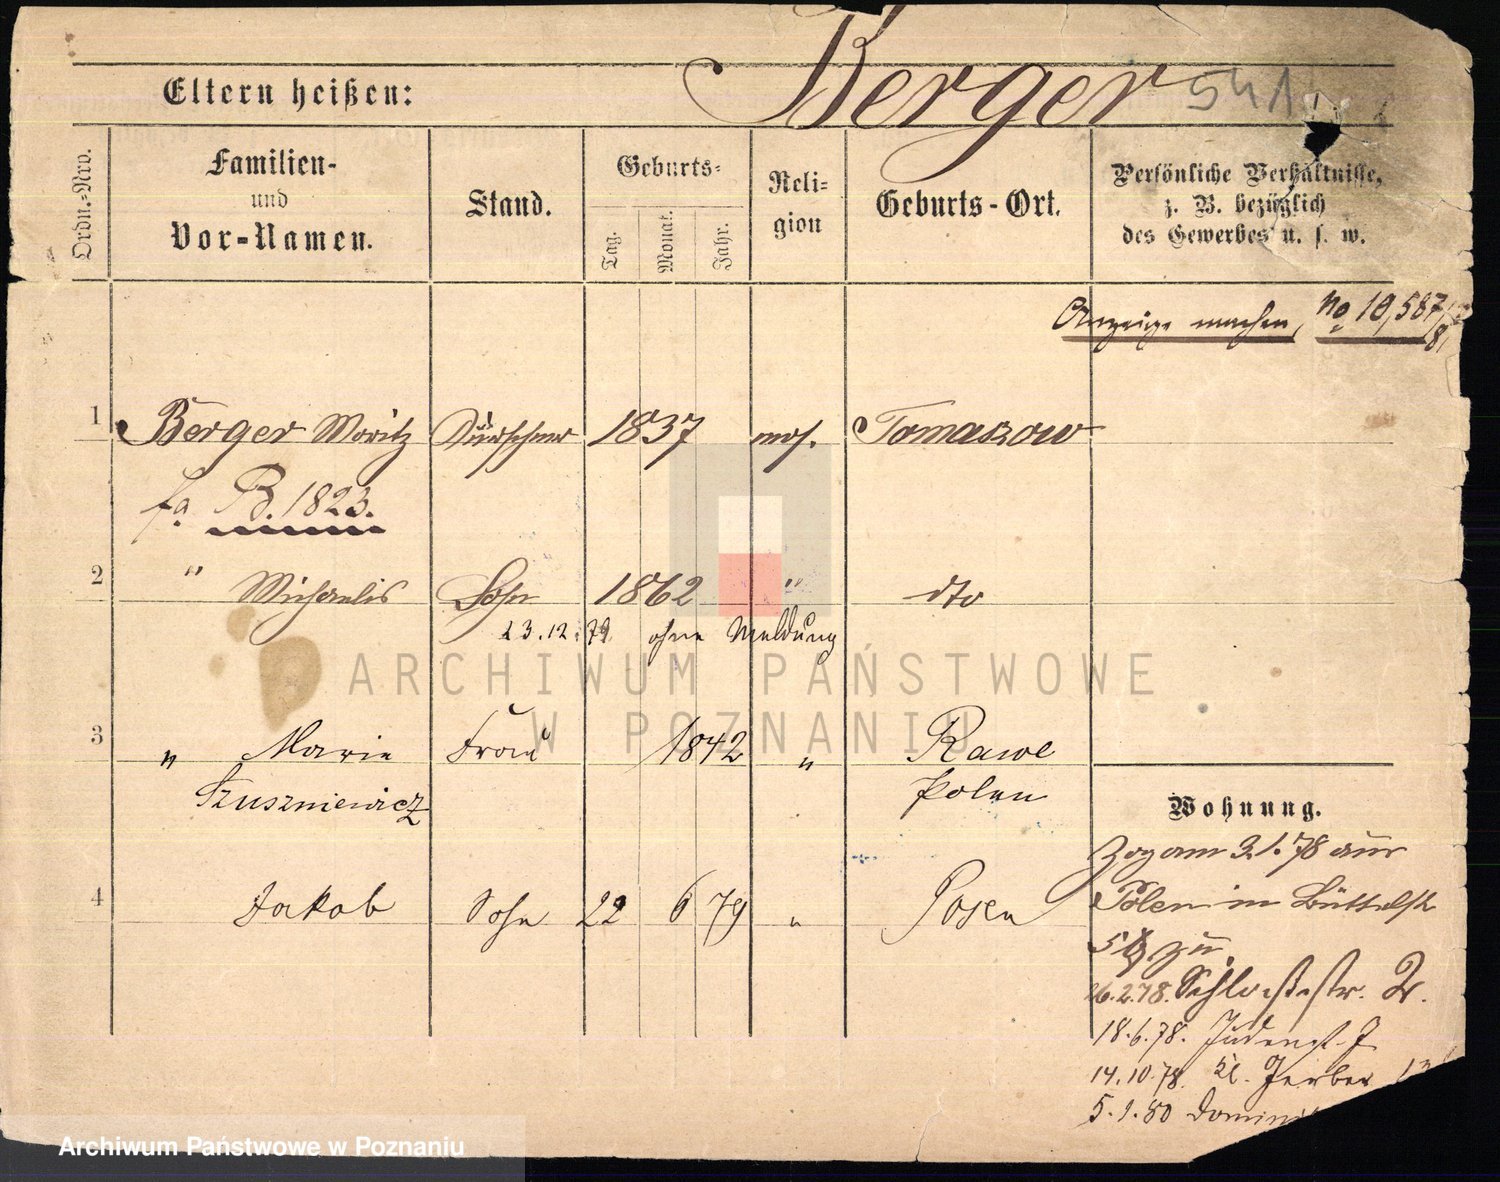 Berger 541
Eltern heißen:
Ordn.-Nro.
Familien-
und
Vor-Namen.
Stand.
Geburts-
Tag.
Monat.
Jahr.
Reli-
gion
Geburts-Ort.
Persönliche Verhältnisse,
z. B. bezüglich
des Gewerbes u. s. w.
Anzeige machen, No 10,587/
1 Berger Moritz Kürschner 1837 mos. Tomaszow
fa. B. 1823.
2 " Michaelis Sohn 1862 " dto
23.12.79 ohne Meldung
3 " Marie Frau 1842 " Rawe
Szuszniewicz Polen
4 Jakob Sohn 22 6 79 " Posen
Wohnung.
Zog am 3.1.78 aus
Polen in Büttelstr
zu
26.2.78. Schlossstr. 2.
18.6.78. Judenst. 7
14.10.78. Kl. Gerber
5.1.80 Domini
ARCHIWUM PAŃSTWOWE
W POZNANIU
Archiwum Państwowe w Poznaniu